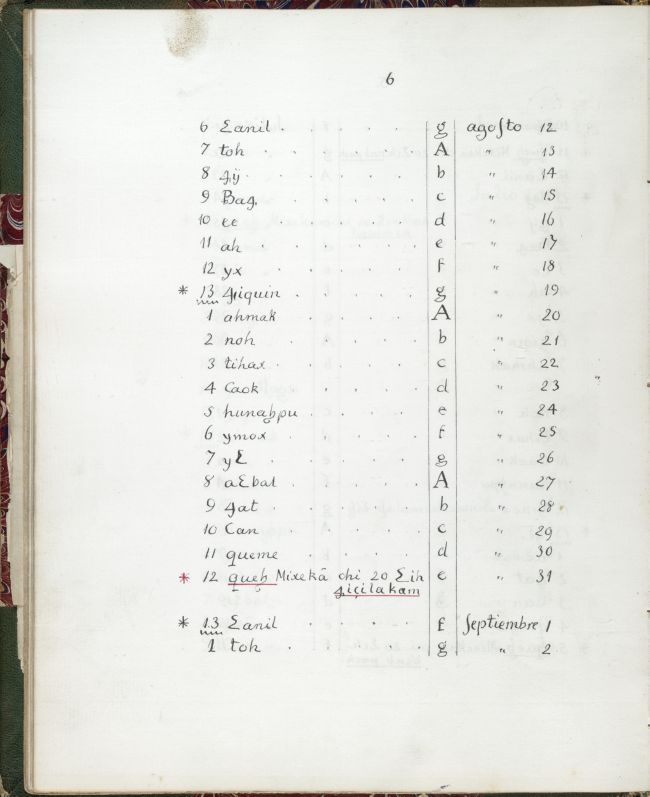 6
6 Ɛanil . . . . g agoſto 12
7 toh . . . . A " 13
8 ꜭij . . . . b " 14
9 Baꜭ . . . . c " 15
10 ee . . . . d " 16
11 ah . . . . e " 17
12 yx . . . . f " 18
* 13 ꜭiquin . . . . g " 19
1 ahmak . . . . A " 20
2 noh . . . . b " 21
3 tihax . . . . c " 22
4 Caok . . . . d " 23
5 hunahpu . . . . e " 24
6 ymox . . . . f " 25
7 yƐ . . . . g " 26
8 aƐbal . . . . A " 27
9 ꜭat . . . . b " 28
10 Can . . . . c " 29
11 queme . . . . d " 30
* 12 queh Mixekā chi 20 Ɛih e " 31
ꜭiçilakam
* 13 Ɛanil . . . . f ſeptiembre 1
1 toh . . . . g " 2